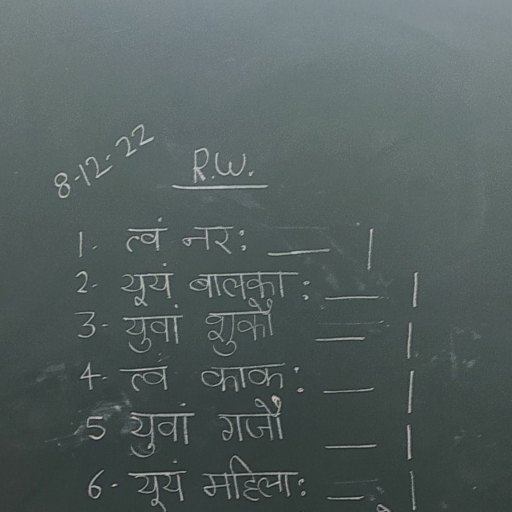 8-12-22
R.W.
1. त्वं नरः ___ |
2- यूयं बालकाः ___ |
3- युवां शुकौ ___ |
4- त्वं काकः ___ |
5 युवां गजौ ___ |
6- यूयं महिलाः ___ |